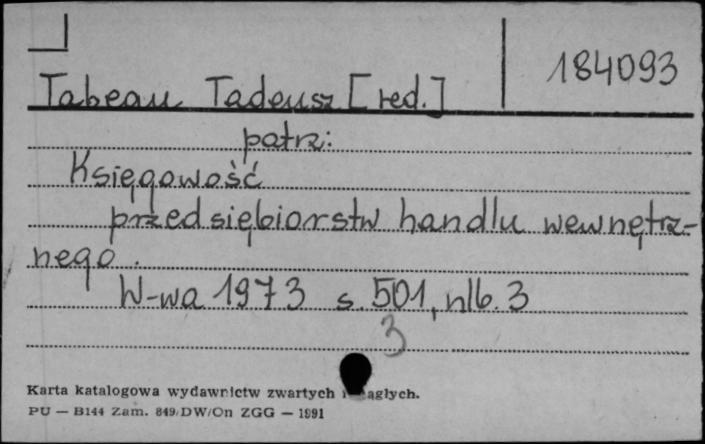 184093
Tabeau Tadeusz [red.]
patrz:
Księgowość
przedsiębiorstw handlu wewnętrz-
nego.
W-wa 1973 s. 501, nlb. 3
3
Karta katalogowa wydawnictw zwartych i ciągłych.
PU — B144 Zam. 849/DW/On ZGG — 1991